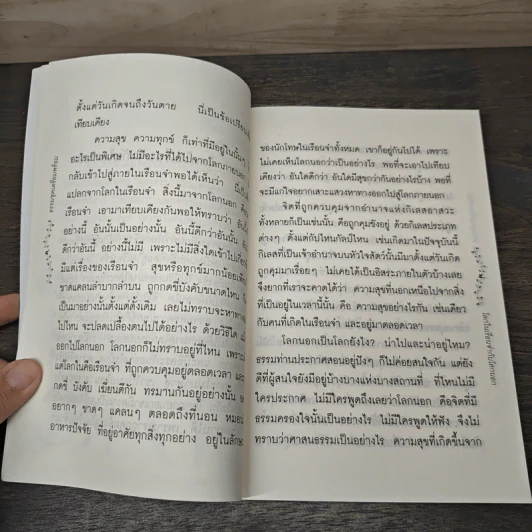 ตั้งแต่วันเกิดจนถึงวันตาย นี่เป็นข้อเปรียบ
เทียบเคียง
ความสุข ความทุกข์ ก็เท่าที่มีอยู่ในนั้นๆ
อะไรเป็นพิเศษ ไม่มีอะไรที่ได้ไปจากโลกภายนอก
กลับเข้าไปสู่ภายในเรือนจำพอได้เห็นว่า
แปลกจากโลกในเรือนจำ สิ่งนี้มาจากโลกนอก คือ
เรือนจำ เอามาเทียบเคียงกันพอให้ทราบว่า อันนี้
อย่างนี้ อันนั้นเป็นอย่างนั้น อันนี้ดีกว่าอันนั้น อัน
ดีกว่าอันนี้ อย่างนี้ไม่มี เพราะไม่มีสิ่งใดเข้าไป
มีแต่เรื่องของเรือนจำ สุขหรือทุกข์มากน้อยเพียง
ขาดแคลนลำบากลำบน ถูกกดขี่บังคับขนาดไหน
เป็นมาอย่างนั้นตั้งแต่ดั้งเดิม เลยไม่ทราบจะหาทาง
ไปไหน จะปลดเปลื้องตนไปได้อย่างไร ด้วยวิธีใด
ออกไปโลกนอก โลกนอกก็ไม่ทราบอยู่ที่ไหน เพราะ
แต่โลกในคือเรือนจำ ที่ถูกควบคุมอยู่ตลอดเวลา และ
กดขี่ บังคับ เฆี่ยนตีกัน ทรมานกันอยู่อย่างนั้น
อยากๆ ขาดๆ แคลนๆ ตลอดถึงที่นอน หมอน
อาหารปัจจัย ที่อยู่อาศัยทุกสิ่งทุกอย่าง อยู่ในลักษ
ของนักโทษในเรือนจำทั้งหมด เขาก็อยู่กันไปได้ เพราะ
ไม่เคยเห็นโลกนอกว่าเป็นอย่างไร พอที่จะเอาไปเทียบ
เคียงว่า อันใดดีกว่า อันใดมีสุขกว่ากันอย่างไรบ้าง พอที่
จะมีแก่ใจอยากเสาะแสวงหาทางออกไปสู่โลกภายนอก
จิตที่ถูกควบคุมจากอำนาจแห่งกิเลสอาสวะ
ทั้งหลายก็เป็นเช่นนั้น คือถูกคุมขังอยู่ ด้วยกิเลสประเภท
ต่างๆ ตั้งแต่กัปไหนกัลป์ไหน เช่นเกิดมาในปัจจุบันนี้
กิเลสที่เป็นเจ้าอำนาจบนหัวใจสัตว์นั้นมีมาตั้งแต่วันเกิด
ถูกคุมมาเรื่อยๆ ไม่เคยได้เป็นอิสระภายในตัวบ้างเลย
จึงยากที่เราจะคาดได้ว่า ความสุขที่นอกเหนือไปจากสิ่ง
ที่เป็นอยู่ในเวลานี้นั้น คือ ความสุขอย่างไรกัน เช่นเดียว
กับคนที่เกิดในเรือนจำ และอยู่มาตลอดเวลา
โลกนอกเป็นโลกยังไง? น่าไปและน่าอยู่ไหม?
ธรรมท่านประกาศสอนอยู่ปังๆ ก็ไม่ค่อยสนใจกัน แต่ยัง
ดีที่ผู้สนใจยังมีอยู่บ้างบางแห่งบางสถานที่ ที่ไหนไม่มี
ใครประกาศ ไม่มีใครพูดถึงเลยว่าโลกนอก คือจิตที่มี
ธรรมครองใจนั้นเป็นอย่างไร ไม่มีใครพูดให้ฟัง จึงไม่
ทราบว่าศาสนธรรมเป็นอย่างไร ความสุขที่เกิดขึ้นจาก